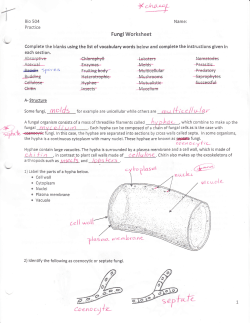 *change
Bio 504
Name:
Practice
Fungi Worksheet
Complete the blanks using the list of vocabulary words below and complete the instructions given in
each section.
Chlorophyll
Lobsters
Nematodes
Enzymes
Molds
Parasitic
species
Fruiting body
Multicellular
Predatory
Budding
Heterotrophs
Mushrooms
Saprophytes
Cellulose
Hyphae
Mycelium
Successful
Chitin
Insects
Mycelium
A- Structure
Some molds for example are unicellular while others are multicellular
A fungal organism consists of a mass of threadlike filaments called hyphae, which combine to make up the
fungal mycelium. Each hypha can be composed of a chain of fungal cells as is the case with
septate fungi. In this case, the hyphae are separated into sections by cross-walls called septa. In some organisms,
the hypha is a continuous cytoplasm with many nuclei. These hyphae are known as
coenocytic
Hyphae contain large vacuoles. The hypha is surrounded by a plasma membrane and a cell wall, which is made of
chitin, in contrast to plant cell walls made of cellulose. Chitin also makes up the exoskeletons of
arthropods such as insects and lobsters.
1) Label the parts of a hypha below.
• Cell wall
• Cytoplasm
• Nuclei
• Plasma membrane
• Vacuole
cytoplasm
nuclei
vacuole
cell wall
plasma membrane
2) Identify the following as coenocytic or septate fungi.
coenocyte
septate
1